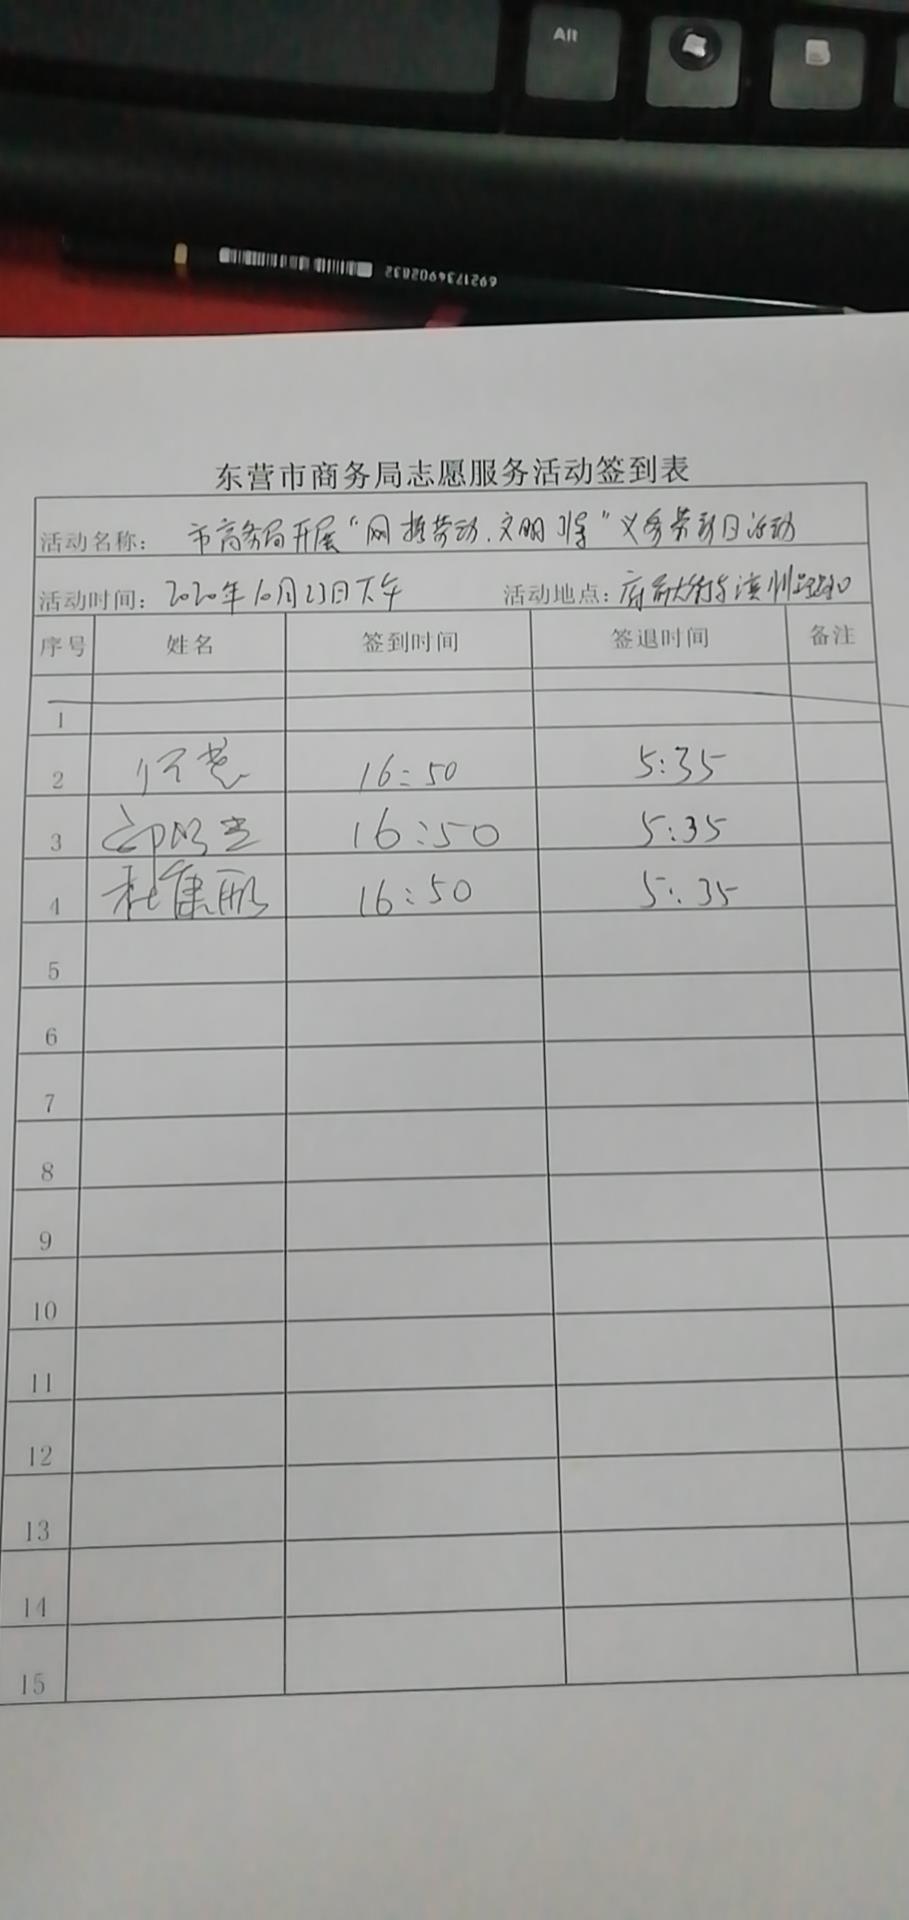 Alt
6921734902832
东营市商务局志愿服务活动签到表
活动名称: 市商务局开展“网 劳动.文明 ”义务劳动日活动
活动时间: 2020年10月23日下午 活动地点: 府前大街与滨州路路口
序号 姓名 签到时间 签退时间 备注
1
2 16:50 5:35
3 16:50 5:35
4 杜 16:50 5:35
5
6
7
8
9
10
11
12
13
14
15